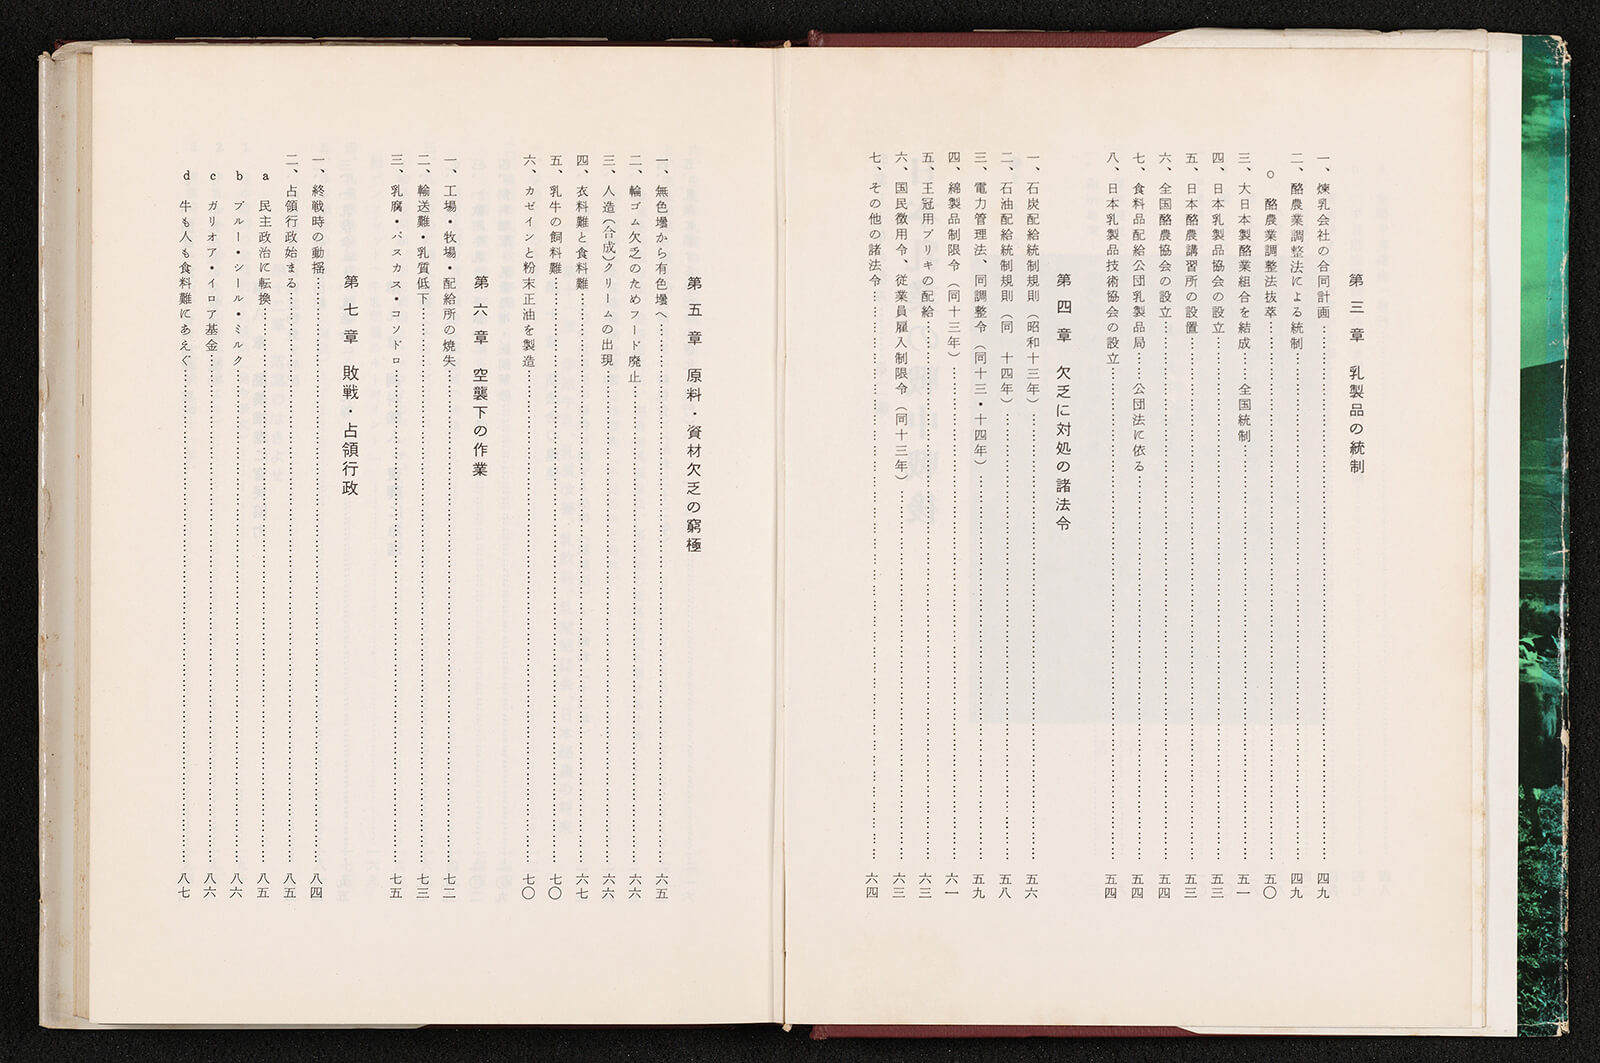 第三章　乳製品の統制
一、煉乳会社の合同計画……四九
二、酪農業調整法による統制……四九
○　酪農業調整法抜萃……五〇
三、大日本製酪業組合を結成……全国統制……五一
四、日本乳製品協会の設立……五三
五、日本酪農講習所の設置……五三
六、全国酪農協会の設立……五四
七、食料品配給公団乳製品局……公団法に依る……五四
八、日本乳製品技術協会の設立……五四
第四章　欠乏に対処の諸法令
一、石炭配給統制規則（昭和十三年）……五六
二、石油配給統制規則（同　十四年）……五八
三、電力管理法、同調整令（同十三・十四年）……五九
四、綿製品制限令（同十三年）……六一
五、王冠用ブリキの配給……六三
六、国民徴用令、従業員雇入制限令（同十三年）……六三
七、その他の諸法令……六四
第五章　原料・資材欠乏の窮極
一、無色壜から有色壜へ……六五
二、輪ゴム欠乏のためフード廃止……六六
三、人造（合成）クリームの出現……六六
四、衣料難と食料難……六七
五、乳牛の飼料難……七〇
六、カゼインと粉末正油を製造……七〇
第六章　空襲下の作業
一、工場・牧場・配給所の焼失……七二
二、輸送難・乳質低下……七三
三、乳腐・パスカス・コソドロ……七五
第七章　敗戦・占領行政
一、終戦時の動揺……八四
二、占領行政始まる……八五
a　民主政治に転換……八五
b　ブルー・シール・ミルク……八六
c　ガリオア・イロア基金……八六
d　牛も人も食料難にあえぐ……八七